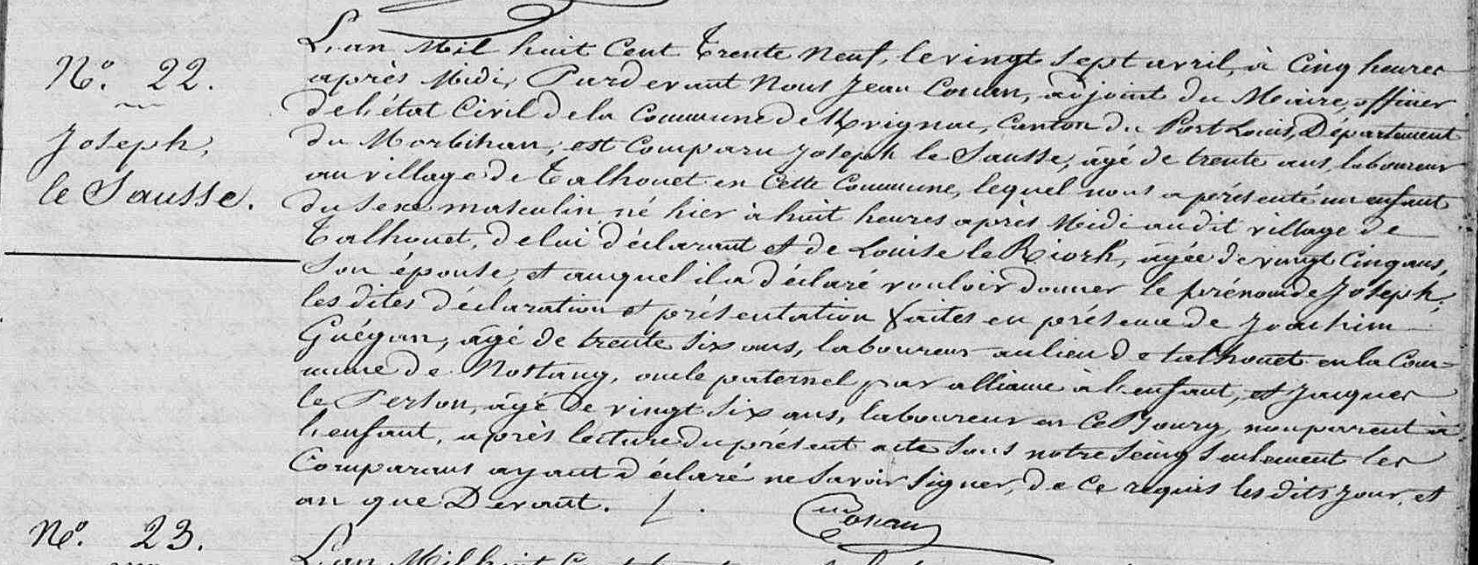 N.o 22.
Joseph,
le Sausse.
L'an Mil huit Cent Trente Neuf, le vingt Sept avril, à Cinq heures
après Midi, Pardevant Nous Jean Conan, adjoint du Maire, officier
de l'état Civil de la Commune de Kvignac, Canton du Port Louis, Département
du Morbihan, est Comparu Joseph le Sausse, âgé de trente ans, laboureur
au village de Talhouet en Cette Commune, lequel nous a présenté un enfant
du sexe masculin né hier à huit heures après Midi audit village de
Talhouet, de lui déclarant et de Louise le Riorh, âgée de vingt Cinq ans,
Son épouse, et auquel il a déclaré vouloir donner le prénom de Joseph,
les dites declaration et présentation faites en présence de Joachim
Guégan, âgé de trente six ans, laboureur au lieu de talhouet en la Com=
mune de Nostang, oncle paternel par alliance à l'enfant, et Jacques
le Person, âgé de vingt six ans, laboureur en Ce Bourg, non parent à
l'enfant, après lecture du présent acte sous notre Seing Seulement les
Comparans ayant déclaré ne Savoir Signer, de Ce requis les dits jour, et
an que Devant. /.
Conan
N.o 23.
L'an Mil huit Cent